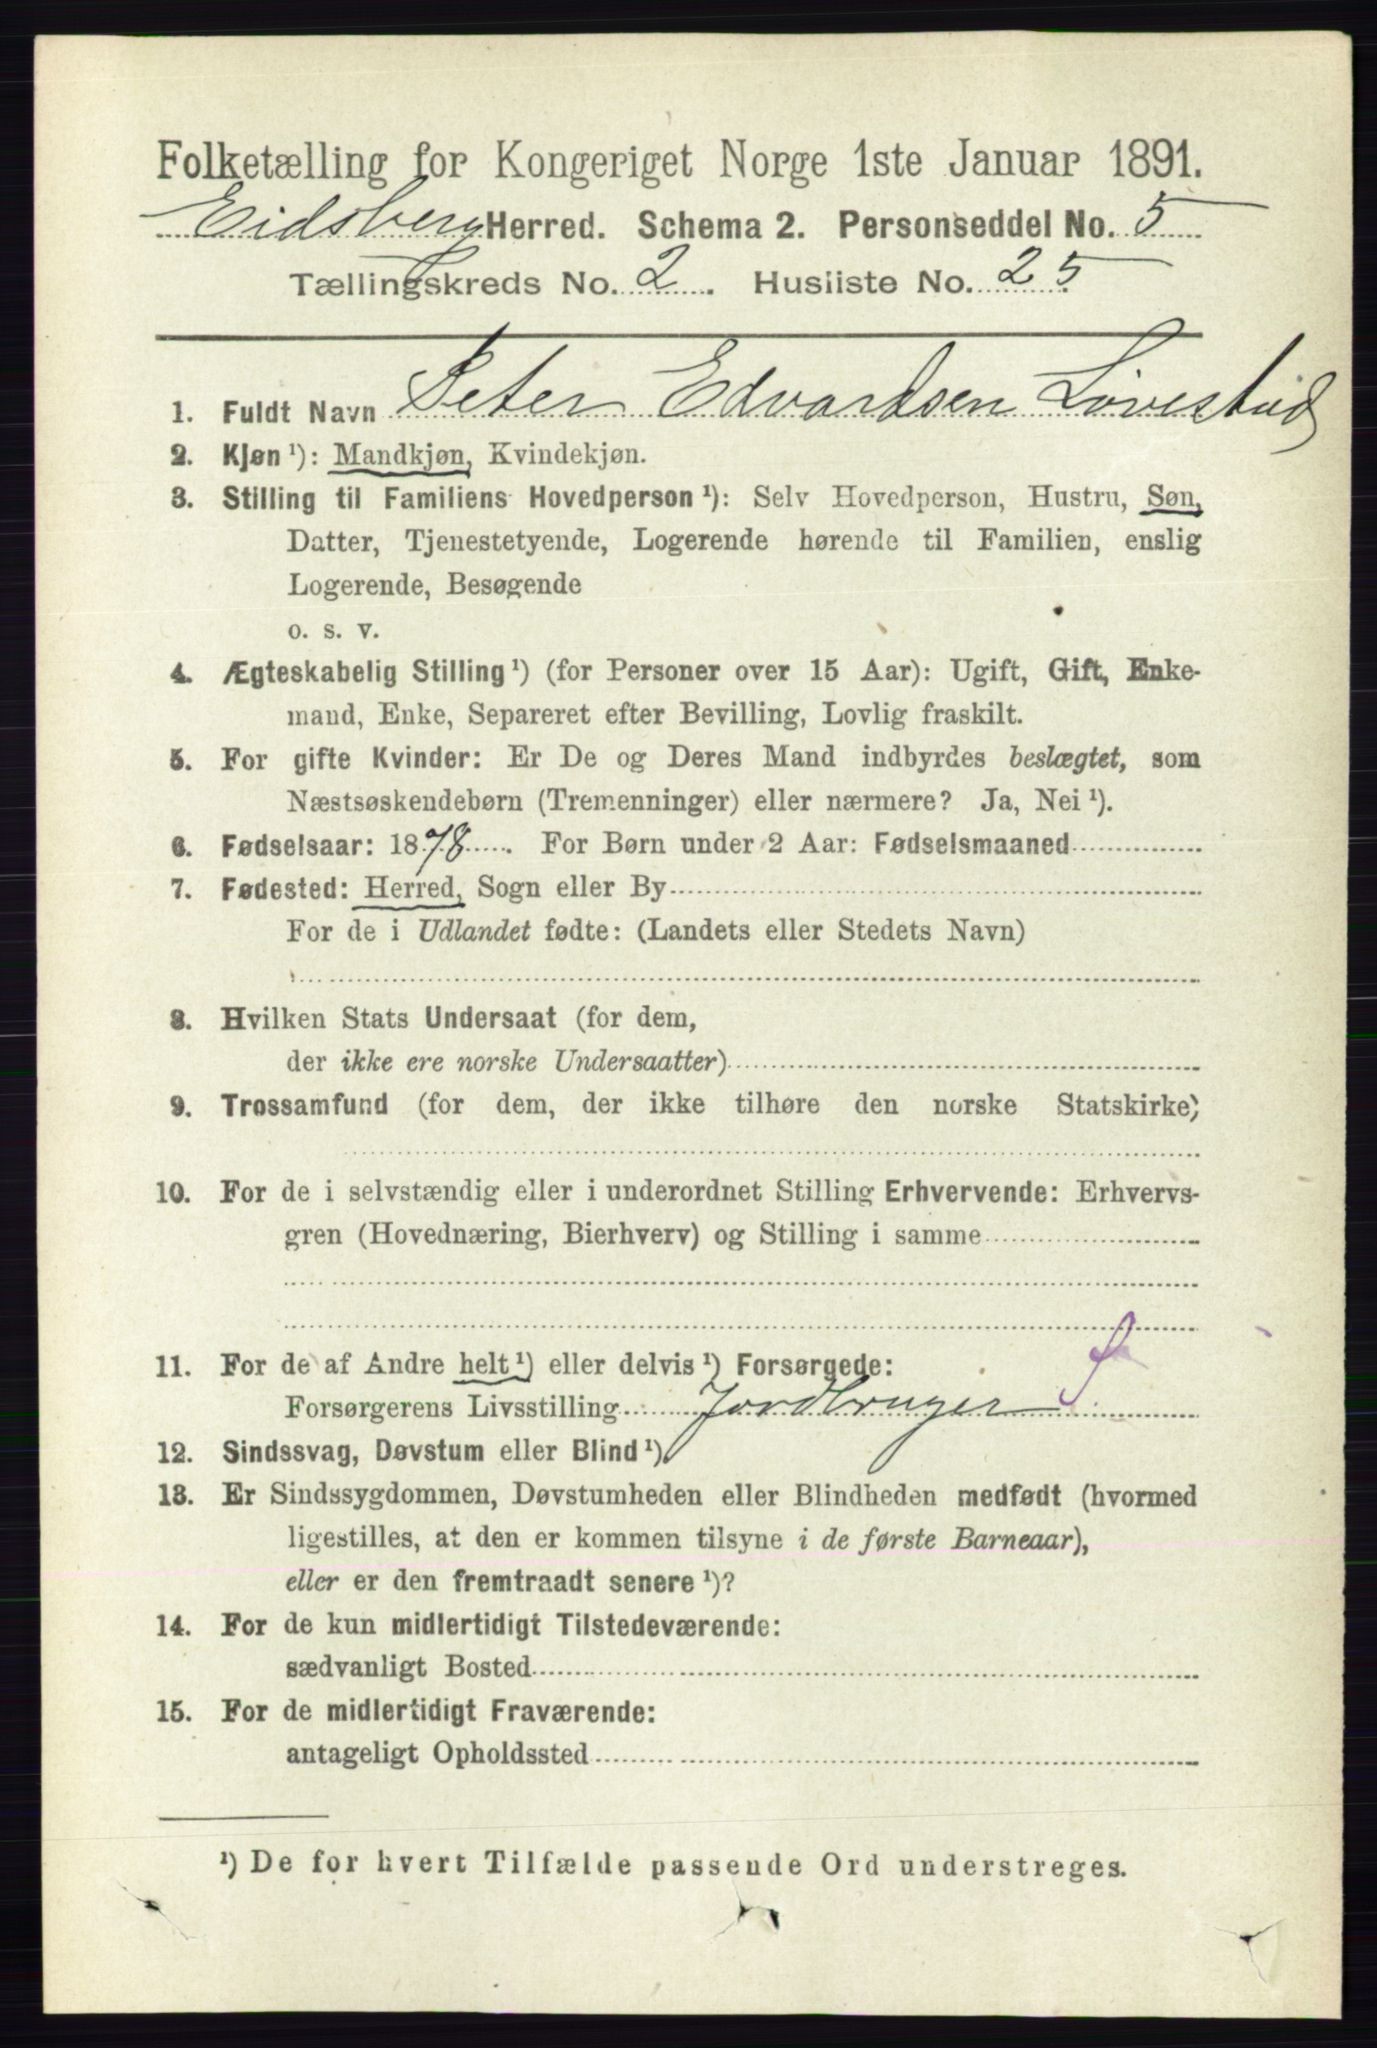 Folketælling for Kongeriget Norge 1ste Januar 1891.
Eidsberg Herred. Schema 2. Personseddel No. 5
Tællingskreds No. 2. Husliste No. 25
1. Fuldt Navn Peter Edvardsen Løvestad
2. Kjøn ¹): Mandkjøn, Kvindekjøn.
3. Stilling til Familiens Hovedperson ¹): Selv Hovedperson, Hustru, Søn,
Datter, Tjenestetyende, Logerende hørende til Familien, enslig
Logerende, Besøgende
o. s. v.
4. Ægteskabelig Stilling ¹) (for Personer over 15 Aar): Ugift, Gift, Enke-
mand, Enke, Separeret efter Bevilling, Lovlig fraskilt.
5. For gifte Kvinder: Er De og Deres Mand indbyrdes beslægtet, som
Næstsøskendebørn (Tremenninger) eller nærmere? Ja, Nei ¹).
6. Fødselsaar: 1878. For Børn under 2 Aar: Fødselsmaaned
7. Fødested: Herred, Sogn eller By
For de i Udlandet fødte: (Landets eller Stedets Navn)
8. Hvilken Stats Undersaat (for dem,
der ikke ere norske Undersaatter)
9. Trossamfund (for dem, der ikke tilhøre den norske Statskirke)
10. For de i selvstændig eller i underordnet Stilling Erhvervende: Erhvervs-
gren (Hovednæring, Bierhverv) og Stilling i samme
11. For de af Andre helt ¹) eller delvis ¹) Forsørgede:
Forsørgerens Livsstilling Jordbruger
12. Sindssvag, Døvstum eller Blind ¹).
13. Er Sindssygdommen, Døvstumheden eller Blindheden medfødt (hvormed
ligestilles, at den er kommen tilsyne i de første Barneaar),
eller er den fremtraadt senere ¹)?
14. For de kun midlertidigt Tilstedeværende:
sædvanligt Bosted
15. For de midlertidigt Fraværende:
antageligt Opholdssted
¹) De for hvert Tilfælde passende Ord understreges.